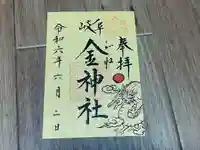 奉拝
岐阜
金神社
令和六年六月二日